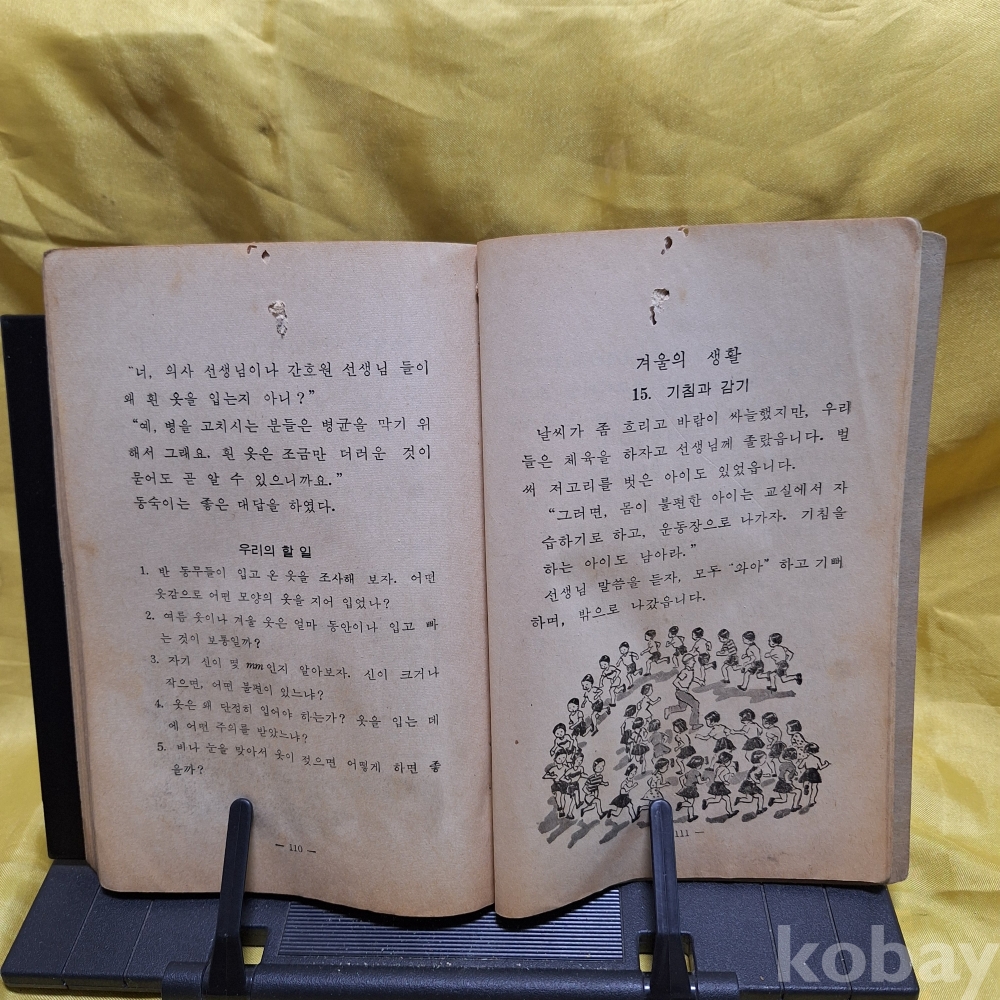 "너, 의사 선생님이나 간호원 선생님 들이
왜 흰 옷을 입는지 아니?"
"예, 병을 고치시는 분들은 병균을 막기 위
해서 그래요. 흰 옷은 조금만 더러운 것이
묻어도 곧 알 수 있으니까요."
동숙이는 좋은 대답을 하였다.
우리의 할 일
1. 반 동무들이 입고 온 옷을 조사해 보자. 어떤
옷감으로 어떤 모양의 옷을 지어 입었나?
2. 여름 옷이나 겨울 옷은 얼마 동안이나 입고 빠
는 것이 보통일까?
3. 자기 신이 몇 mm인지 알아보자. 신이 크거나
작으면, 어떤 불편이 있느냐?
4. 옷은 왜 단정히 입어야 하는가? 옷을 입는 데
에 어떤 주의를 받았느냐?
5. 비나 눈을 맞아서 옷이 젖으면 어떻게 하면 좋
을까?
— 110 —
겨울의 생활
15. 기침과 감기
날씨가 좀 흐리고 바람이 싸늘했지만, 우리
들은 체육을 하자고 선생님께 졸랐읍니다. 벌
써 저고리를 벗은 아이도 있었읍니다.
"그러면, 몸이 불편한 아이는 교실에서 자
습하기로 하고, 운동장으로 나가자. 기침을
하는 아이도 남아라."
선생님 말씀을 듣자, 모두 "와아" 하고 기뻐
하며, 밖으로 나갔읍니다.
111 —
kobay